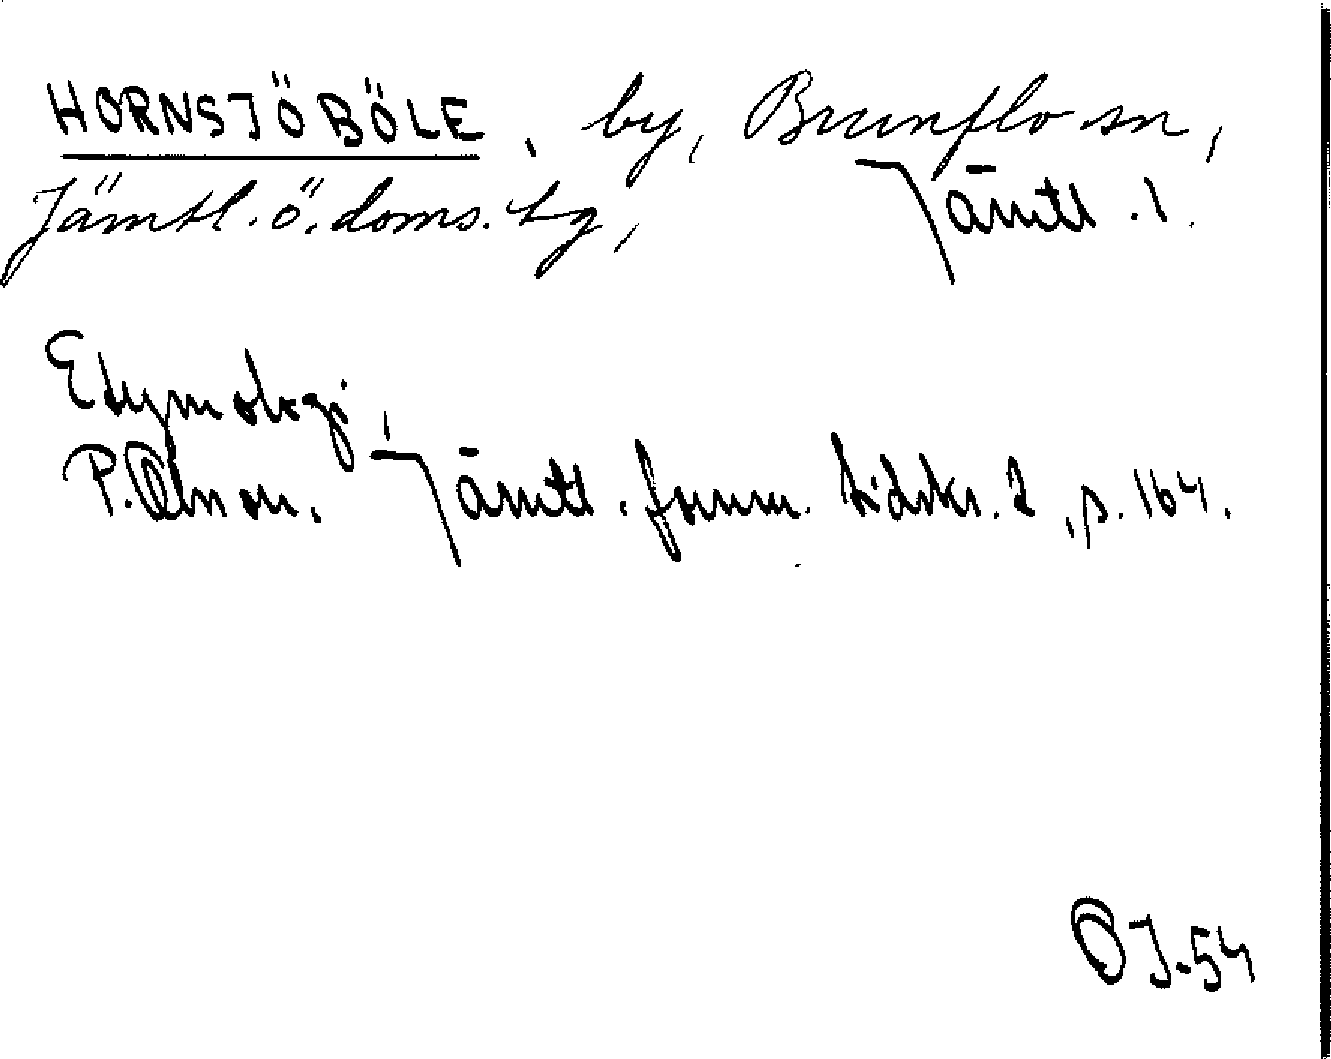 HORNSJÖBÖLE, by, Brunflo sn,
Jämtl. ö. doms. tg, Jämtl. l.
Etymologi,
P. Olsson. Jämtl. fornm. tidskr. 2, s. 164.
ÖJ-54